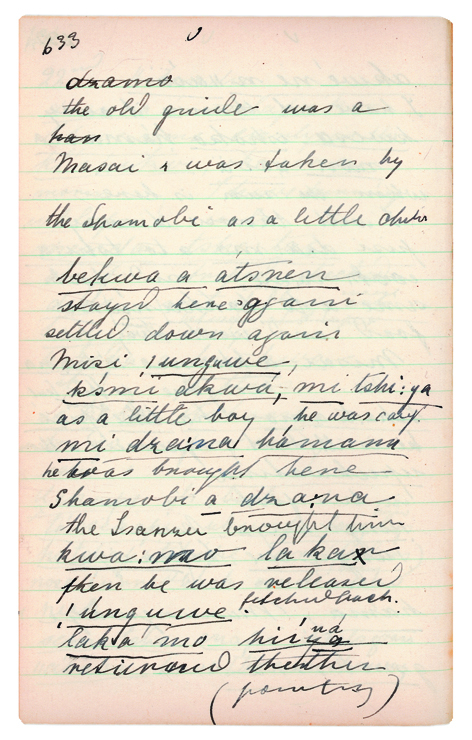 633
dzamo
the old guide was a
han
Masai & was taken by
the Shamobi as a little
bekwa a átsnen
stayd here again
settled down again
Misi !unguwe
k'smi akwa, mi tshi:ya
as a little boy he was
mi dza:na hamana
he was brought here
Shamobi a dza:na
the Isanzu brought him
kwa:mo laka
then he was released
fetched back.
!unguwe
laka mo na
returned
(country)